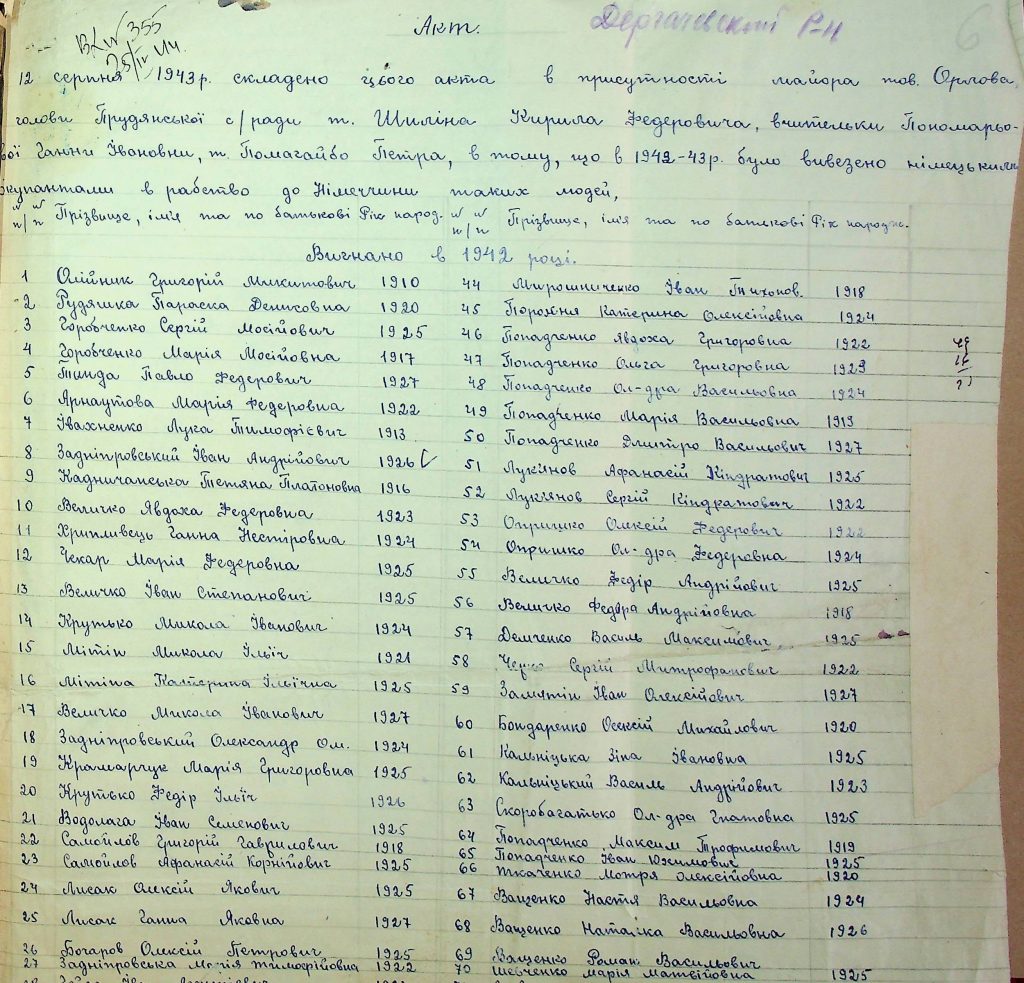 Акт.
Дергачевский Р-н
6
355
12 серпня 1943 р. складено цього акта в присутності майора тов. Орлова,
голови Прудянської с/ради т. Шиліна Кирила Федеровича, вчительки Пономарьо-
вої Ганни Івановни, т. Помагайбо Петра, в тому, що в 1942-43 р. було вивезено німецькими
окупантами в рабство до Німеччини таких людей,
№№ п/п Прізвище, ім'я та по батькові Рік народ. №№ п/п Прізвище, ім'я та по батькові Рік народж.
Вигнано в 1942 році.
1 Олійник Григорій Микитович 1910
2 Рудяшка Параска Денисовна 1920
3 Горобченко Сергій Мосійович 1925
4 Горобченко Марія Мосійовна 1917
5 Тинда Павло Федерович 1927
6 Арнаутова Марія Федеровна 1922
7 Івахненко Лука Тимофієвич 1913
8 Задніпровський Іван Андрійович 1926
9 Кадничанська Тетяна Платоновна 1916
10 Величко Явдоха Федеровна 1923
11 Хрипливець Ганна Нестіровна 1924
12 Чекар Марія Федеровна 1925
13 Величко Іван Степанович 1925
14 Крутько Микола Іванович 1924
15 Мітін Микола Ільїч 1921
16 Мітіна Катерина Ільїчна 1925
17 Величко Микола Іванович 1927
18 Задніпровський Олександр Ом. 1924
19 Крамарчук Марія Григоровна 1925
20 Крутько Федір Ільїч 1926
21 Водолага Іван Семенович 1925
22 Самойлов Григорій Гаврилович 1918
23 Самойлов Афанасій Корнійович 1925
24 Лисак Олексій Якович 1925
25 Лисак Ганна Яковна 1927
26 Бочаров Олексій Петрович 1925
27 Задніпровська Марія Тимофійовна 1922
44 Мирошниченко Іван Тихонов. 1918
45 Порожня Катерина Олексійовна 1924
46 Попадченко Явдоха Григоровна 1922
47 Попадченко Ольга Григоровна 1923
48 Попадченко Ол-дра Васильовна 1924
49 Попадченко Марія Васильовна 1919
50 Попадченко Дмитро Васильович 1927
51 Лук'янов Афанасій Кіндратович 1925
52 Лук'янов Сергій Кіндратович 1922
53 Опришко Олексій Федерович 1922
54 Опришко Ол-дра Федеровна 1924
55 Величко Федір Андрійович 1925
56 Величко Федора Андрійовна 1918
57 Демченко Василь Максимович 1925
58 Сергій Митрофанович 1922
59 Замятін Іван Олексійович 1927
60 Бондаренко Олексій Михайлович 1920
61 Кальніцька Зіна Івановна 1925
62 Кальніцький Василь Андрійович 1923
63 Скоробагатько Ол-дра Гнатовна 1925
64 Попадченко Максим Трофимович 1919
65 Попадченко Іван Юхимович 1925
66 Ткаченко Мотря Олексійовна 1920
67 Ващенко Настя Васильовна 1924
68 Ващенко Наталка Васильовна 1926
69 Ващенко Роман Васильович
70 Шевченко Марія Матвійовна 1925